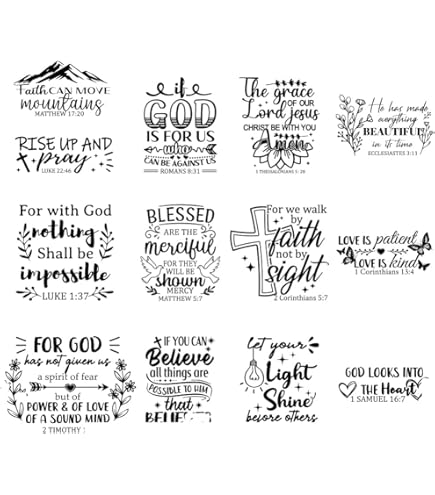 Faith CAN MOVE
mountains
MATTHEW 17:20
RISE UP AND
pray
LUKE 22:46
if
GOD
IS FOR US
who
CAN BE AGAINST US
ROMANS 8:31
The grace
OF OUR
Lord Jesus
CHRIST BE WITH YOU
Amen
1 THESSALONIANS 5:28
He has made
everything
BEAUTIFUL
in it time
ECCLESIASTES 3:11
For with God
nothing
Shall be
impossible
LUKE 1:37
BLESSED
ARE THE
merciful
FOR THEY
WILL BE
shown
MERCY
MATTHEW 5:7
For we walk
by
faith
not by
sight
2 Corinthians 5:7
LOVE IS patient
LOVE IS kind
1 Corinthians 13:4
FOR GOD
has not given us
a spirit of fear
but of
POWER & OF LOVE
OF A SOUND MIND
2 TIMOTHY 1
IF YOU CAN
Believe
all things are
POSSIBLE TO HIM
that
let your
Light
Shine
before others
GOD LOOKS INTO
THE Heart
1 SAMUEL 16:7